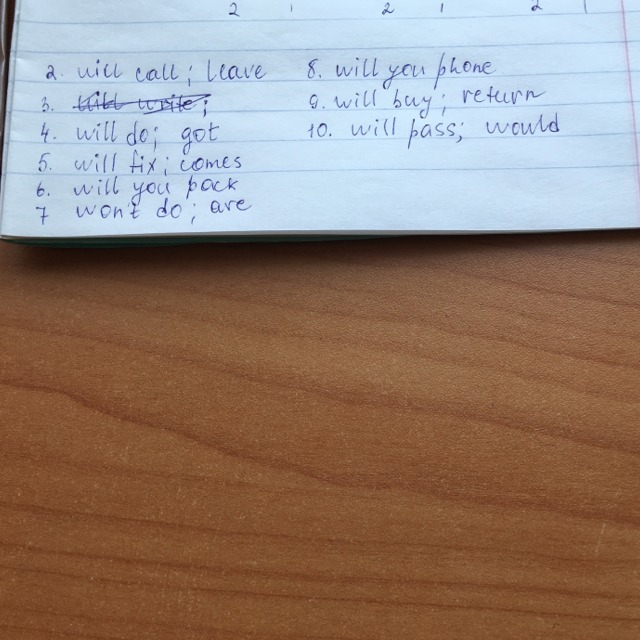 2 1 2 1 2 1
2. will call; leave
3. will write;
4. will do; got
5. will fix; comes
6. will you pack
7 won't do; are
8. will you phone
9. will buy; return
10. will pass; would